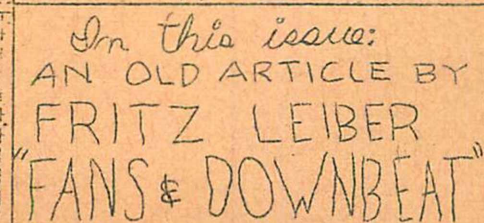 In this issue:
AN OLD ARTICLE BY
FRITZ LEIBER
"FANS & DOWNBEAT"